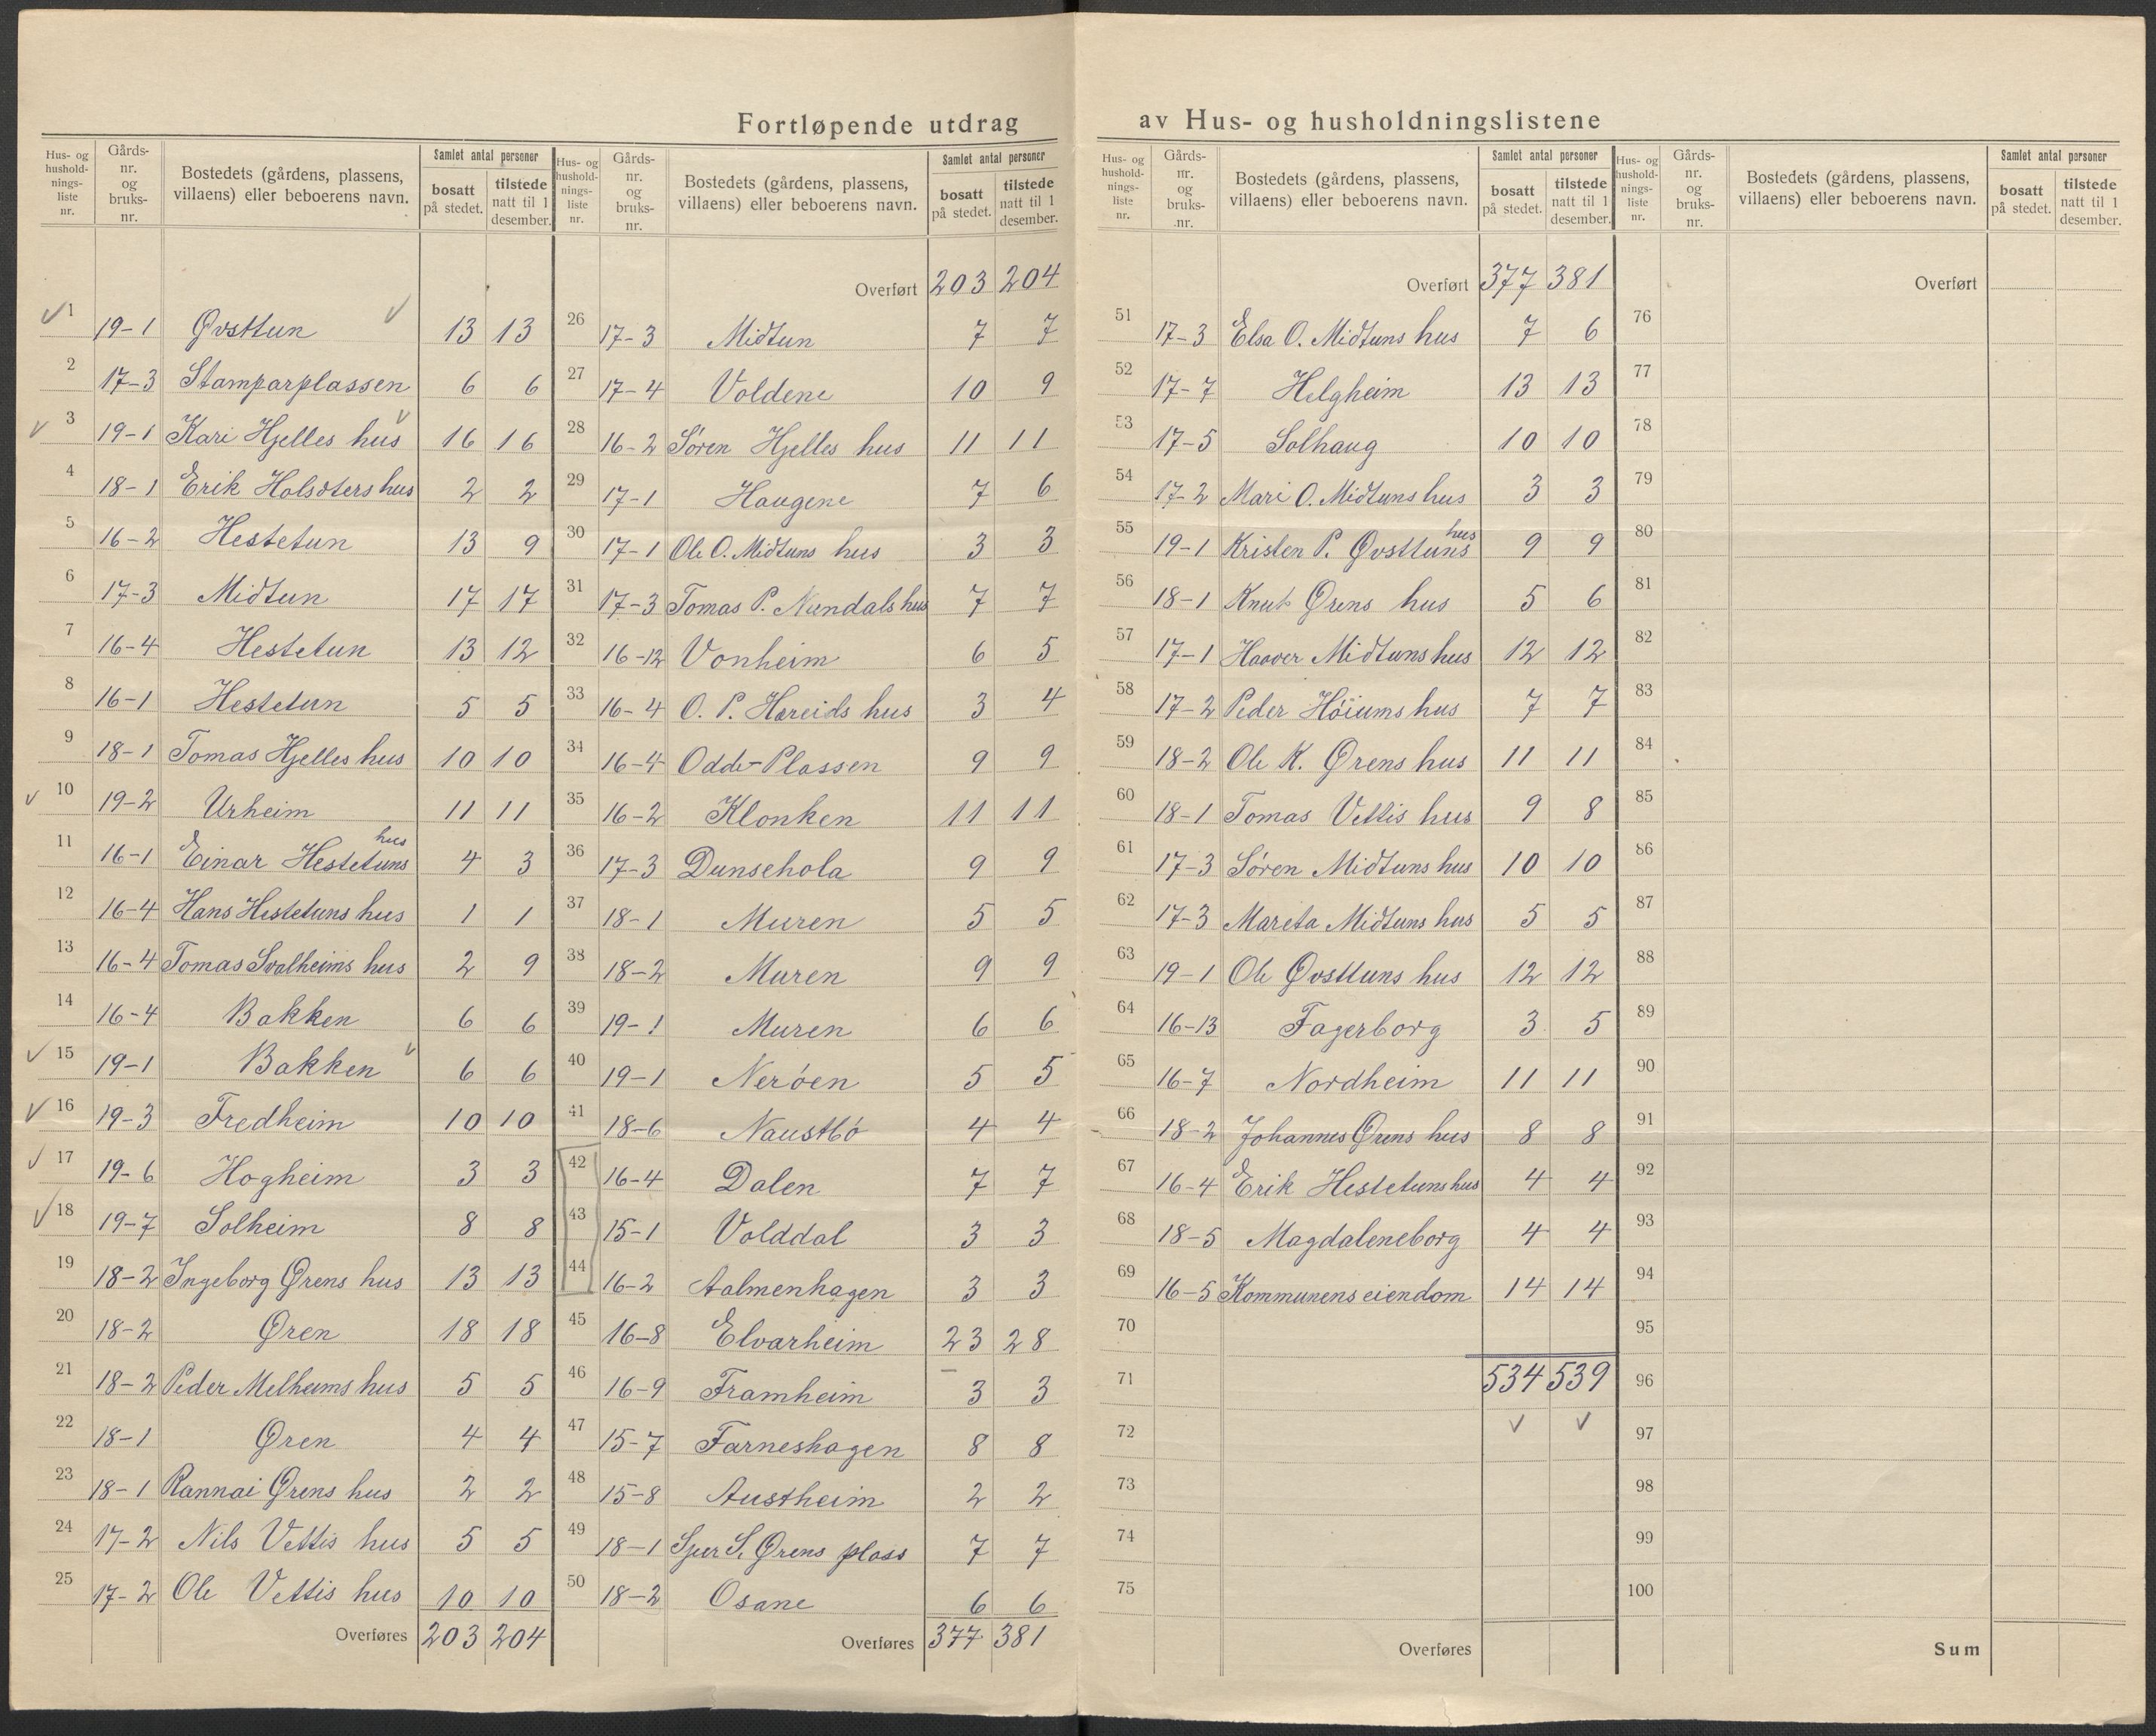 Fortløpende utdrag av Hus- og husholdningslistene
Hus- og hushold-nings-liste nr. | Gårds-nr. og bruks-nr. | Bostedets (gårdens, plassens, villaens) eller beboerens navn. | Samlet antal personer | bosatt på stedet. | tilstede natt til 1 desember.
1 19-1 Øvsttun 13 13
2 17-3 Stamparplassen 6 6
3 19-1 Kari Hjelles hus 16 16
4 18-1 Erik Holsdters hus 2 2
5 16-2 Hestetun 13 9
6 17-3 Midtun 17 17
7 16-4 Hestetun 13 12
8 16-1 Hestetun 5 5
9 18-1 Tomas Hjelles hus 10 10
10 19-2 Urheim 11 11
11 16-1 Einar Hestetuns hus 4 3
12 16-4 Hans Hestetuns hus 1 1
13 16-4 Tomas Svalheims hus 2 9
14 16-4 Bakken 6 6
15 19-1 Bakken 6 6
16 19-3 Fredheim 10 10
17 19-6 Hogheim 3 3
18 19-7 Solheim 8 8
19 18-2 Ingeborg Ørens hus 13 13
20 18-2 Øren 18 18
21 18-2 Peder Melheims hus 5 5
22 18-1 Øren 4 4
23 18-1 Rannai Ørens hus 2 2
24 17-2 Nils Vettis hus 5 5
25 17-2 Ole Vettis hus 10 10
Overføres 203 204
Hus- og hushold-nings-liste nr. | Gårds-nr. og bruks-nr. | Bostedets (gårdens, plassens, villaens) eller beboerens navn. | Samlet antal personer | bosatt på stedet. | tilstede natt til 1 desember.
Overført 203 204
26 17-3 Midtun 7 7
27 17-4 Voldene 10 9
28 16-2 Søren Hjelles hus 11 11
29 17-1 Haugene 7 6
30 17-1 Ole O. Midtuns hus 3 3
31 17-3 Tomas P. Nundals hus 7 7
32 16-12 Vonheim 6 5
33 16-4 O. P. Hæreids hus 3 4
34 16-4 Odde-Plassen 9 9
35 16-2 Klonken 11 11
36 17-3 Dunsehola 9 9
37 18-1 Muren 5 5
38 18-2 Muren 9 9
39 19-1 Muren 6 6
40 19-1 Nerøen 5 5
41 18-6 Naustbø 4 4
42 16-4 Dalen 7 7
43 15-1 Volddal 3 3
44 16-2 Aalmenhagen 3 3
45 16-8 Elvarheim 23 28
46 16-9 Framheim 3 3
47 15-7 Farneshagen 8 8
48 15-8 Austheim 2 2
49 18-1 Sjur S. Ørens plass 7 7
50 18-2 Osane 6 6
Overføres 377 381
Hus- og hushold-nings-liste nr. | Gårds-nr. og bruks-nr. | Bostedets (gårdens, plassens, villaens) eller beboerens navn. | Samlet antal personer | bosatt på stedet. | tilstede natt til 1 desember.
Overført 377 381
51 17-3 Elsa O. Midtuns hus 7 6
52 17-7 Helgheim 13 13
53 17-5 Solhaug 10 10
54 17-2 Mari O. Midtuns hus 3 3
55 19-1 Kristen P. Øvsttuns hus 9 9
56 18-1 Knut Ørens hus 5 6
57 17-1 Haaver Midtuns hus 12 12
58 17-2 Peder Høiums hus 7 7
59 18-2 Ole K. Ørens hus 11 11
60 18-1 Tomas Vettis hus 9 8
61 17-3 Søren Midtuns hus 10 10
62 17-3 Mareta Midtuns hus 5 5
63 19-1 Ole Øvsttuns hus 12 12
64 16-13 Fagerborg 3 5
65 16-7 Nordheim 11 11
66 18-2 Johannes Ørens hus 8 8
67 16-4 Erik Hestetuns hus 4 4
68 18-5 Magdaleneborg 4 4
69 16-5 Kommunens eiendom 14 14
70
71 534 539
72
73
74
75
Overføres
Hus- og hushold-nings-liste nr. | Gårds-nr. og bruks-nr. | Bostedets (gårdens, plassens, villaens) eller beboerens navn. | Samlet antal personer | bosatt på stedet. | tilstede natt til 1 desember.
Overført
76
77
78
79
80
81
82
83
84
85
86
87
88
89
90
91
92
93
94
95
96
97
98
99
100
Sum